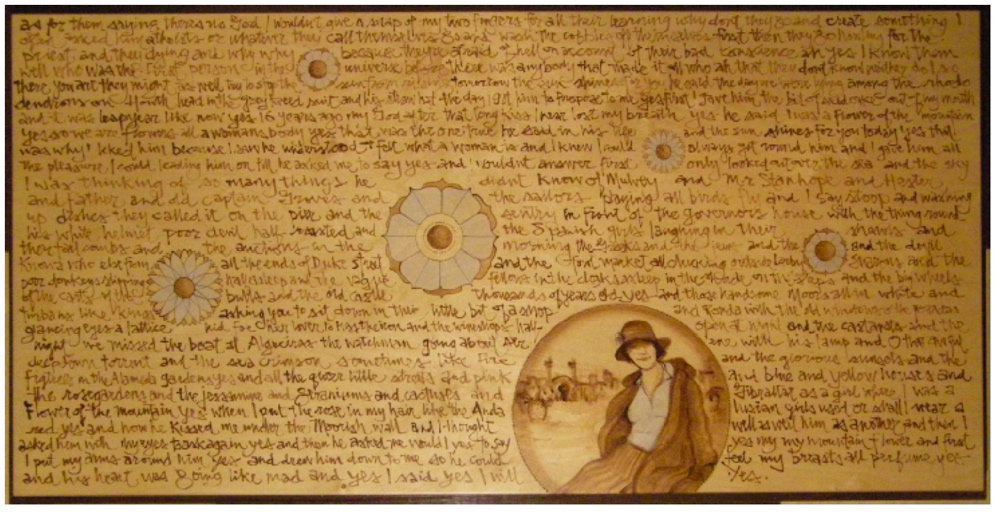 as for them saying theres no God I wouldnt give a snap of my two fingers for all their learning why dont they go and create something I
often asked him atheists or whatever they call themselves go and wash the cobbles off themselves first then they go howling for the
priest and they dying and why why because theyre afraid of hell on account of their bad conscience ah yes I know them
well who was the first person in the universe before there was anybody that made it all who ah that they dont know neither do I so
there you are they might as well try to stop the sun from rising tomorrow the sun shines for you he said the day we were lying among the rhodo
dendrons on Howth head in the grey tweed suit and his straw hat the day I got him to propose to me yes first I gave him the bit of seedcake out of my mouth
and it was leapyear like now yes 16 years ago my God after that long kiss I near lost my breath yes he said I was a flower of the mountain
yes so we are flowers all a womans body yes that was the one true he said in his life and the sun shines for you today yes that
was why I liked him because I saw he understood or felt what a woman is and I knew I could always get round him and I gave him all
the pleasure I could leading him on till he asked me to say yes and I wouldnt answer first only looked out over the sea and the sky
I was thinking of so many things he didnt know of Mulvey and Mr Stanhope and Hester
and father and old captain Groves and the sailors playing all birds fly and I say stoop and washing
up dishes they called it on the pier and the sentry in front of the governors house with the thing round
his white helmet poor devil half roasted and the Spanish girls laughing in their shawls and
their tall combs and the auctions in the morning the Greeks and the jews and the and the devil
knows who else from all the ends of Duke street and the fowl market all clucking outside Larby Sharons and the
poor donkeys slipping half asleep and the vague fellows in the cloaks asleep in the shade on the steps and the big wheels
of the carts of the bulls and the old castle thousands of years old yes and those handsome Moors all in white and
turbans like kings asking you to sit down in their little bit of a shop and Ronda with the old windows of the posadas
glancing eyes a lattice hid for her lover to kiss the iron and the wineshops half open at night and the castanets and the
night we missed the boat at Algeciras the watchman going about ser ene with his lamp and O that awful
deepdown torrent and the sea crimson sometimes like fire and the glorious sunsets and the
figtrees in the Alameda gardens yes and all the queer little streets and pink and blue and yellow houses and
the rosegardens and the jessamine and geraniums and cactuses and Gibraltar as a girl where I was a
Flower of the mountain yes when I put the rose in my hair like the Anda lusian girls used or shall I wear a
red yes and how he kissed me under the Moorish wall and I thought well as well him as another and then I
asked him with my eyes to ask again yes and then he asked me would I yes to say yes my mountain flower and first
I put my arms around him yes and drew him down to me so he could feel my breasts all perfume yes
and his heart was going like mad and yes I said yes I will Yes.